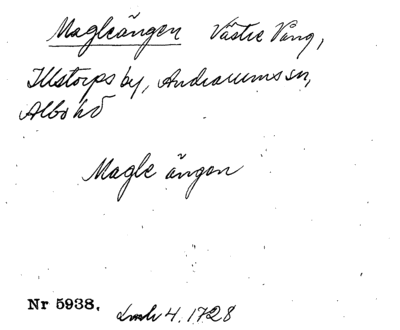 Magleängen Västre Vång,
Illstorps by, Andrarums sn,
Albo hd
Magle ängen
Nr 5938. Lmh 4. 1728